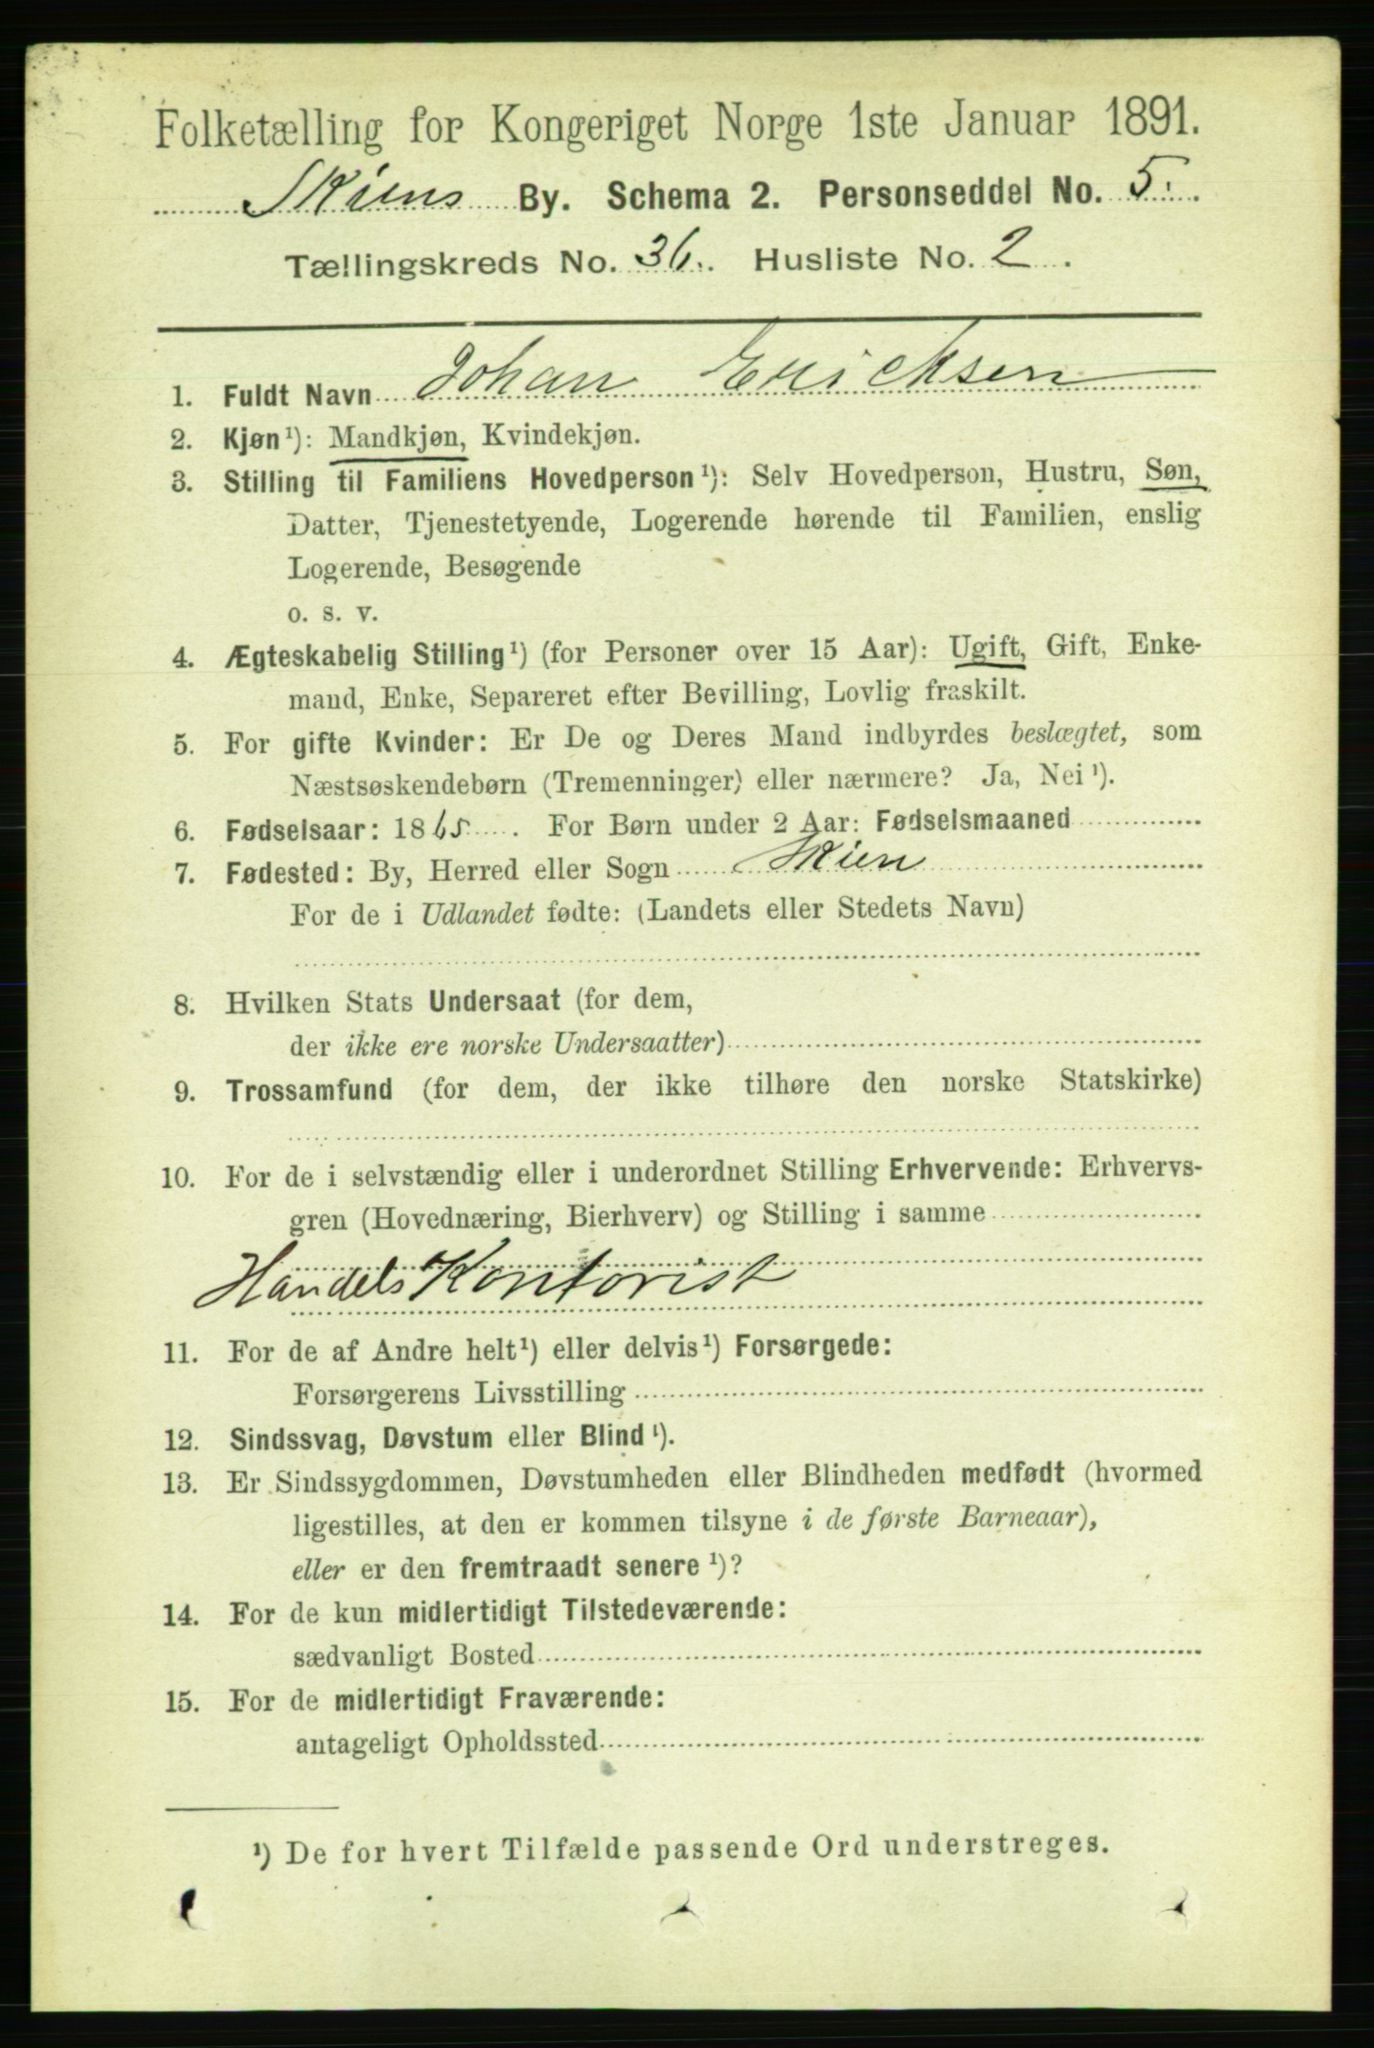 Folketælling for Kongeriget Norge 1ste Januar 1891.
Skiens By. Schema 2. Personseddel No. 5.
Tællingskreds No. 36. Husliste No. 2.
1. Fuldt Navn Johan Ericksen
2. Kjøn¹): Mandkjøn, Kvindekjøn.
3. Stilling til Familiens Hovedperson¹): Selv Hovedperson, Hustru, Søn,
Datter, Tjenestetyende, Logerende hørende til Familien, enslig
Logerende, Besøgende
o. s. v.
4. Ægteskabelig Stilling¹) (for Personer over 15 Aar): Ugift, Gift, Enke-
mand, Enke, Separeret efter Bevilling, Lovlig fraskilt.
5. For gifte Kvinder: Er De og Deres Mand indbyrdes beslægtet, som
Næstsøskendebørn (Tremenninger) eller nærmere? Ja, Nei¹).
6. Fødselsaar: 1865. For Børn under 2 Aar: Fødselsmaaned
7. Fødested: By, Herred eller Sogn Skien
For de i Udlandet fødte: (Landets eller Stedets Navn)
8. Hvilken Stats Undersaat (for dem,
der ikke ere norske Undersaatter)
9. Trossamfund (for dem, der ikke tilhøre den norske Statskirke)
10. For de i selvstændig eller i underordnet Stilling Erhvervende: Erhvervs-
gren (Hovednæring, Bierhverv) og Stilling i samme
Handels Kontorist
11. For de af Andre helt¹) eller delvis¹) Forsørgede:
Forsørgerens Livsstilling
12. Sindssvag, Døvstum eller Blind¹).
13. Er Sindssygdommen, Døvstumheden eller Blindheden medfødt (hvormed
ligestilles, at den er kommen tilsyne i de første Barneaar),
eller er den fremtraadt senere¹)?
14. For de kun midlertidigt Tilstedeværende:
sædvanligt Bosted
15. For de midlertidigt Fraværende:
antageligt Opholdssted
¹) De for hvert Tilfælde passende Ord understreges.